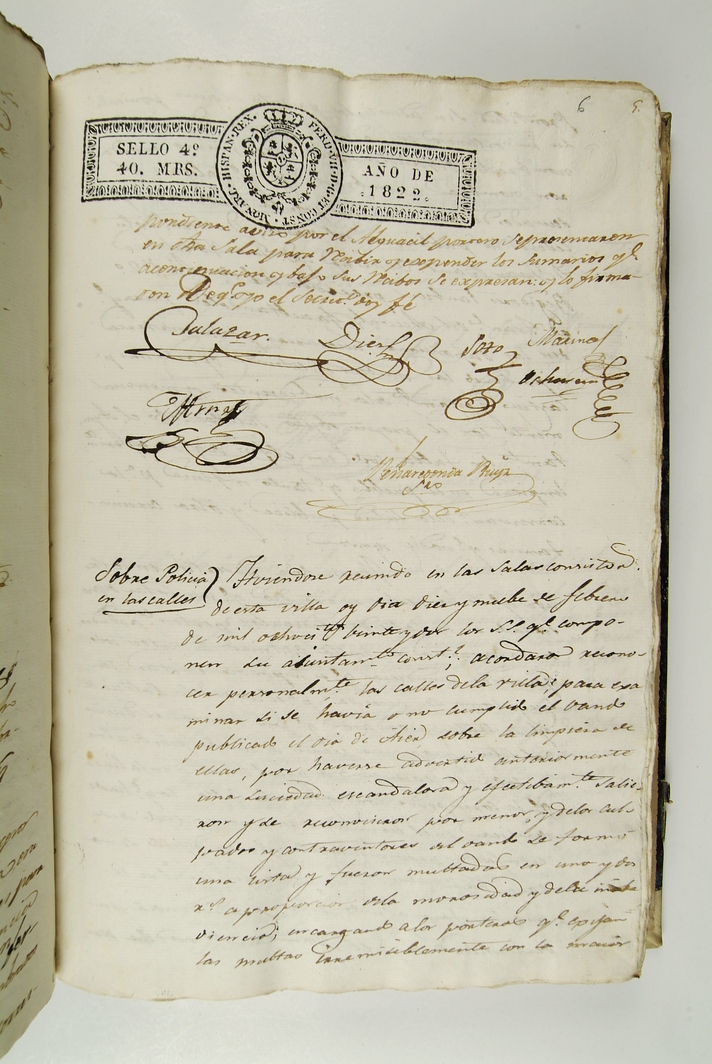 6
SELLO 4º
40. MRS.
HISPAN. REX. FERD. VII. D. G. ET CONST. MONARC.
AÑO DE
1822.
pondiente aviso por el Alguacil portero se presentaren
en dha Sala para recibir y responder los Sumarios qe.
a continuacion y bajo sus recibos se expresan: y lo firma-
ron de q. yo el Secrio. doy fé
Salazar. Diez Soto Marina
Ochoa
Peñarconda Ruyz
Srio
Sobre Policia
en las calles
Haviendose reunido en las Salas consistos.
de esta villa oy dia diez y nuebe de febrero
de mil ochocitos. veinte y dos los S.S. qe. compo-
nen su aiuntamto. constl.; acordaron recono-
cer personalmte. las calles de la villa; para exa
minar si se havia o no cumplido el vando
publicado el dia de ayer sobre la limpieza de
ellas, por haverse advertido anteriormente
una suciedad escandalosa y efectibamte. salie-
ron y se reconocieron por menor, y de los cul-
pados y contraventores del vando se formó
una lista y fueron multados en uno y dos
rs. a proporcion de la morosidad y desobe
diencia; encargando a los porteros qe. exijan
las multas irremisiblemente con la maior